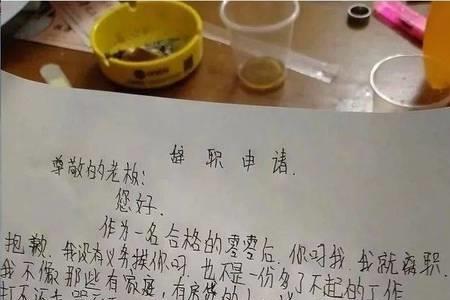 辞职申请.
尊敬的老板:
您好.
作为一名合格的零零后.你吗我.我就辞职.
抱歉.我没有义务挨你吗.也不是一份多了不起的工作
我不像那些有家庭,有房贷的